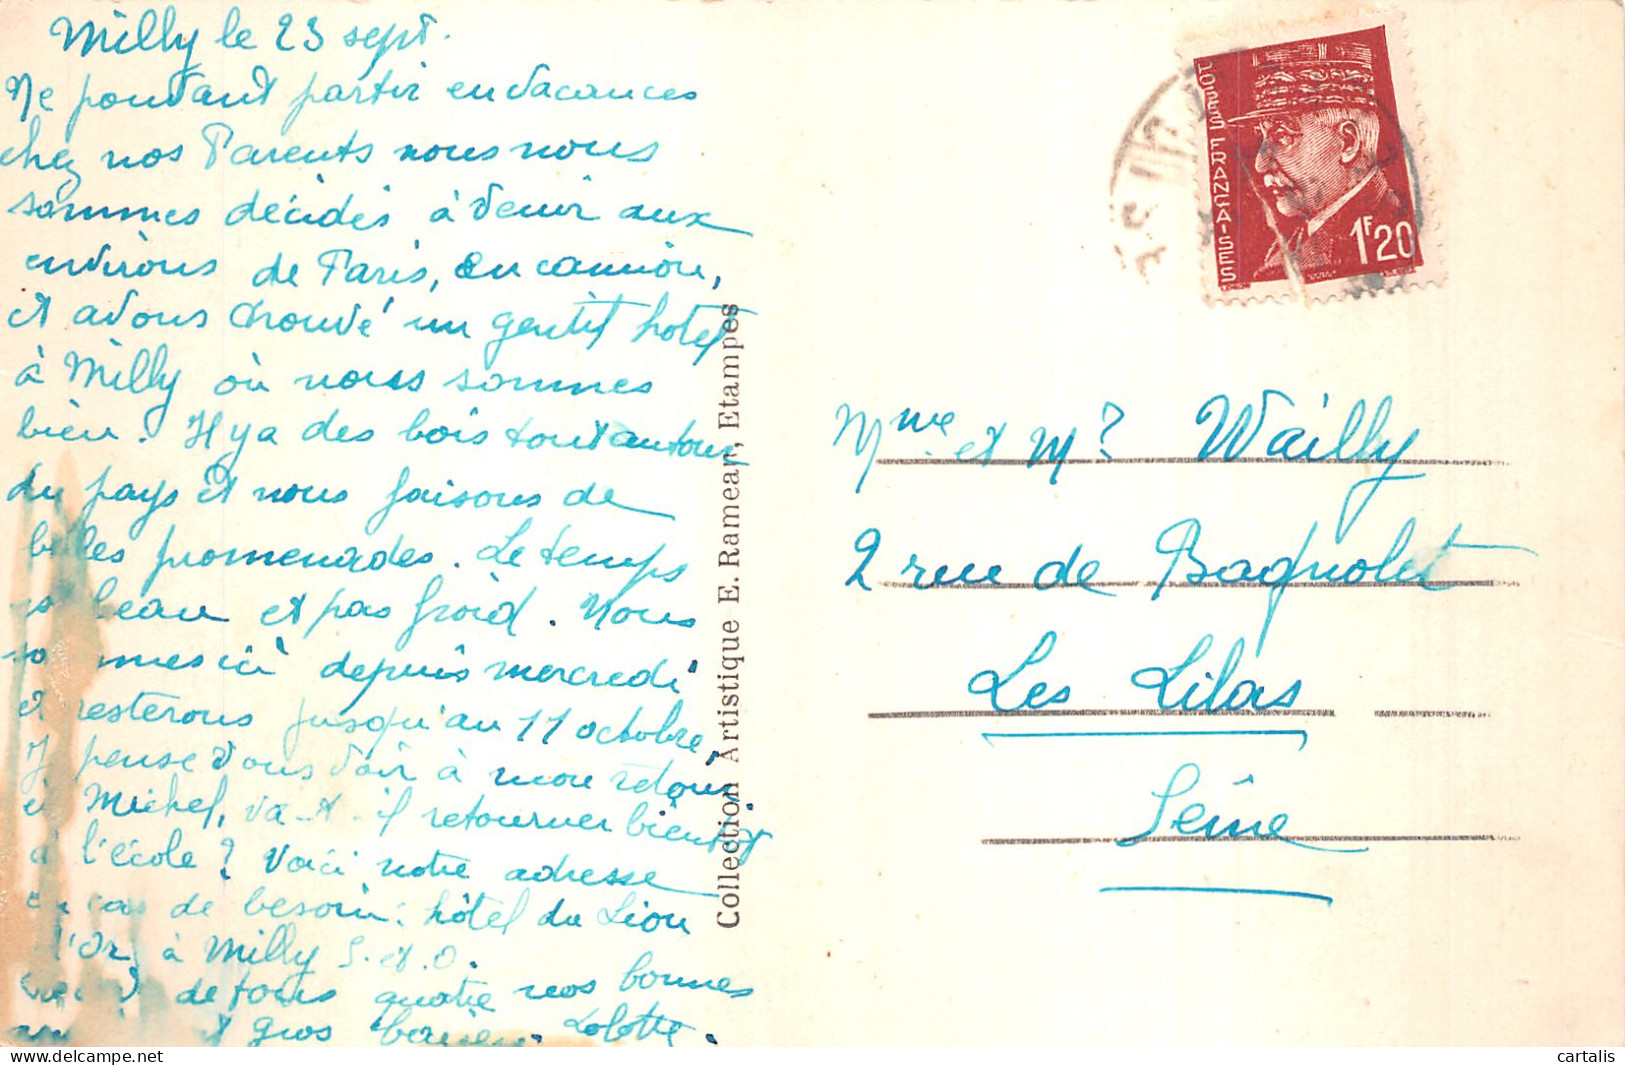 Milly le 23 sept.
Ne pouvant partir en vacances
chez nos Parents nous nous
sommes décidés à venir aux
environs de Paris, en camion,
et avons trouvé un gentil hotel
à Milly où nous sommes
bien. Il y a des bois tout autour
du pays et nous faisons de
belles promenades. Le temps
beau et pas froid. Nous
sommes ici depuis mercredi
et resterons jusqu'au 11 octobre.
Je pense vous voir à mon retour
et Michel, va-t-il retourner bientôt
à l'école ? Voici notre adresse
en cas de besoin : hôtel du Lion
d'Or, à Milly S. et O.
de tous quatre nos bonnes
et gros baisers. Lolotte.
Collection Artistique E. Rameau, Etampes
POSTES FRANÇAISES
1F20
Mme et Mr Wailly
2 rue de Bagnolet
Les Lilas
Seine
cartalis
delcampe.net